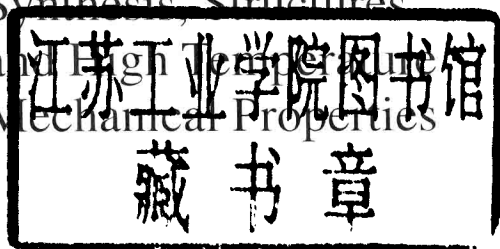 Synthesis, Structures
and High Temperature
Mechanical Properties
江苏工业学院图书馆
藏书章